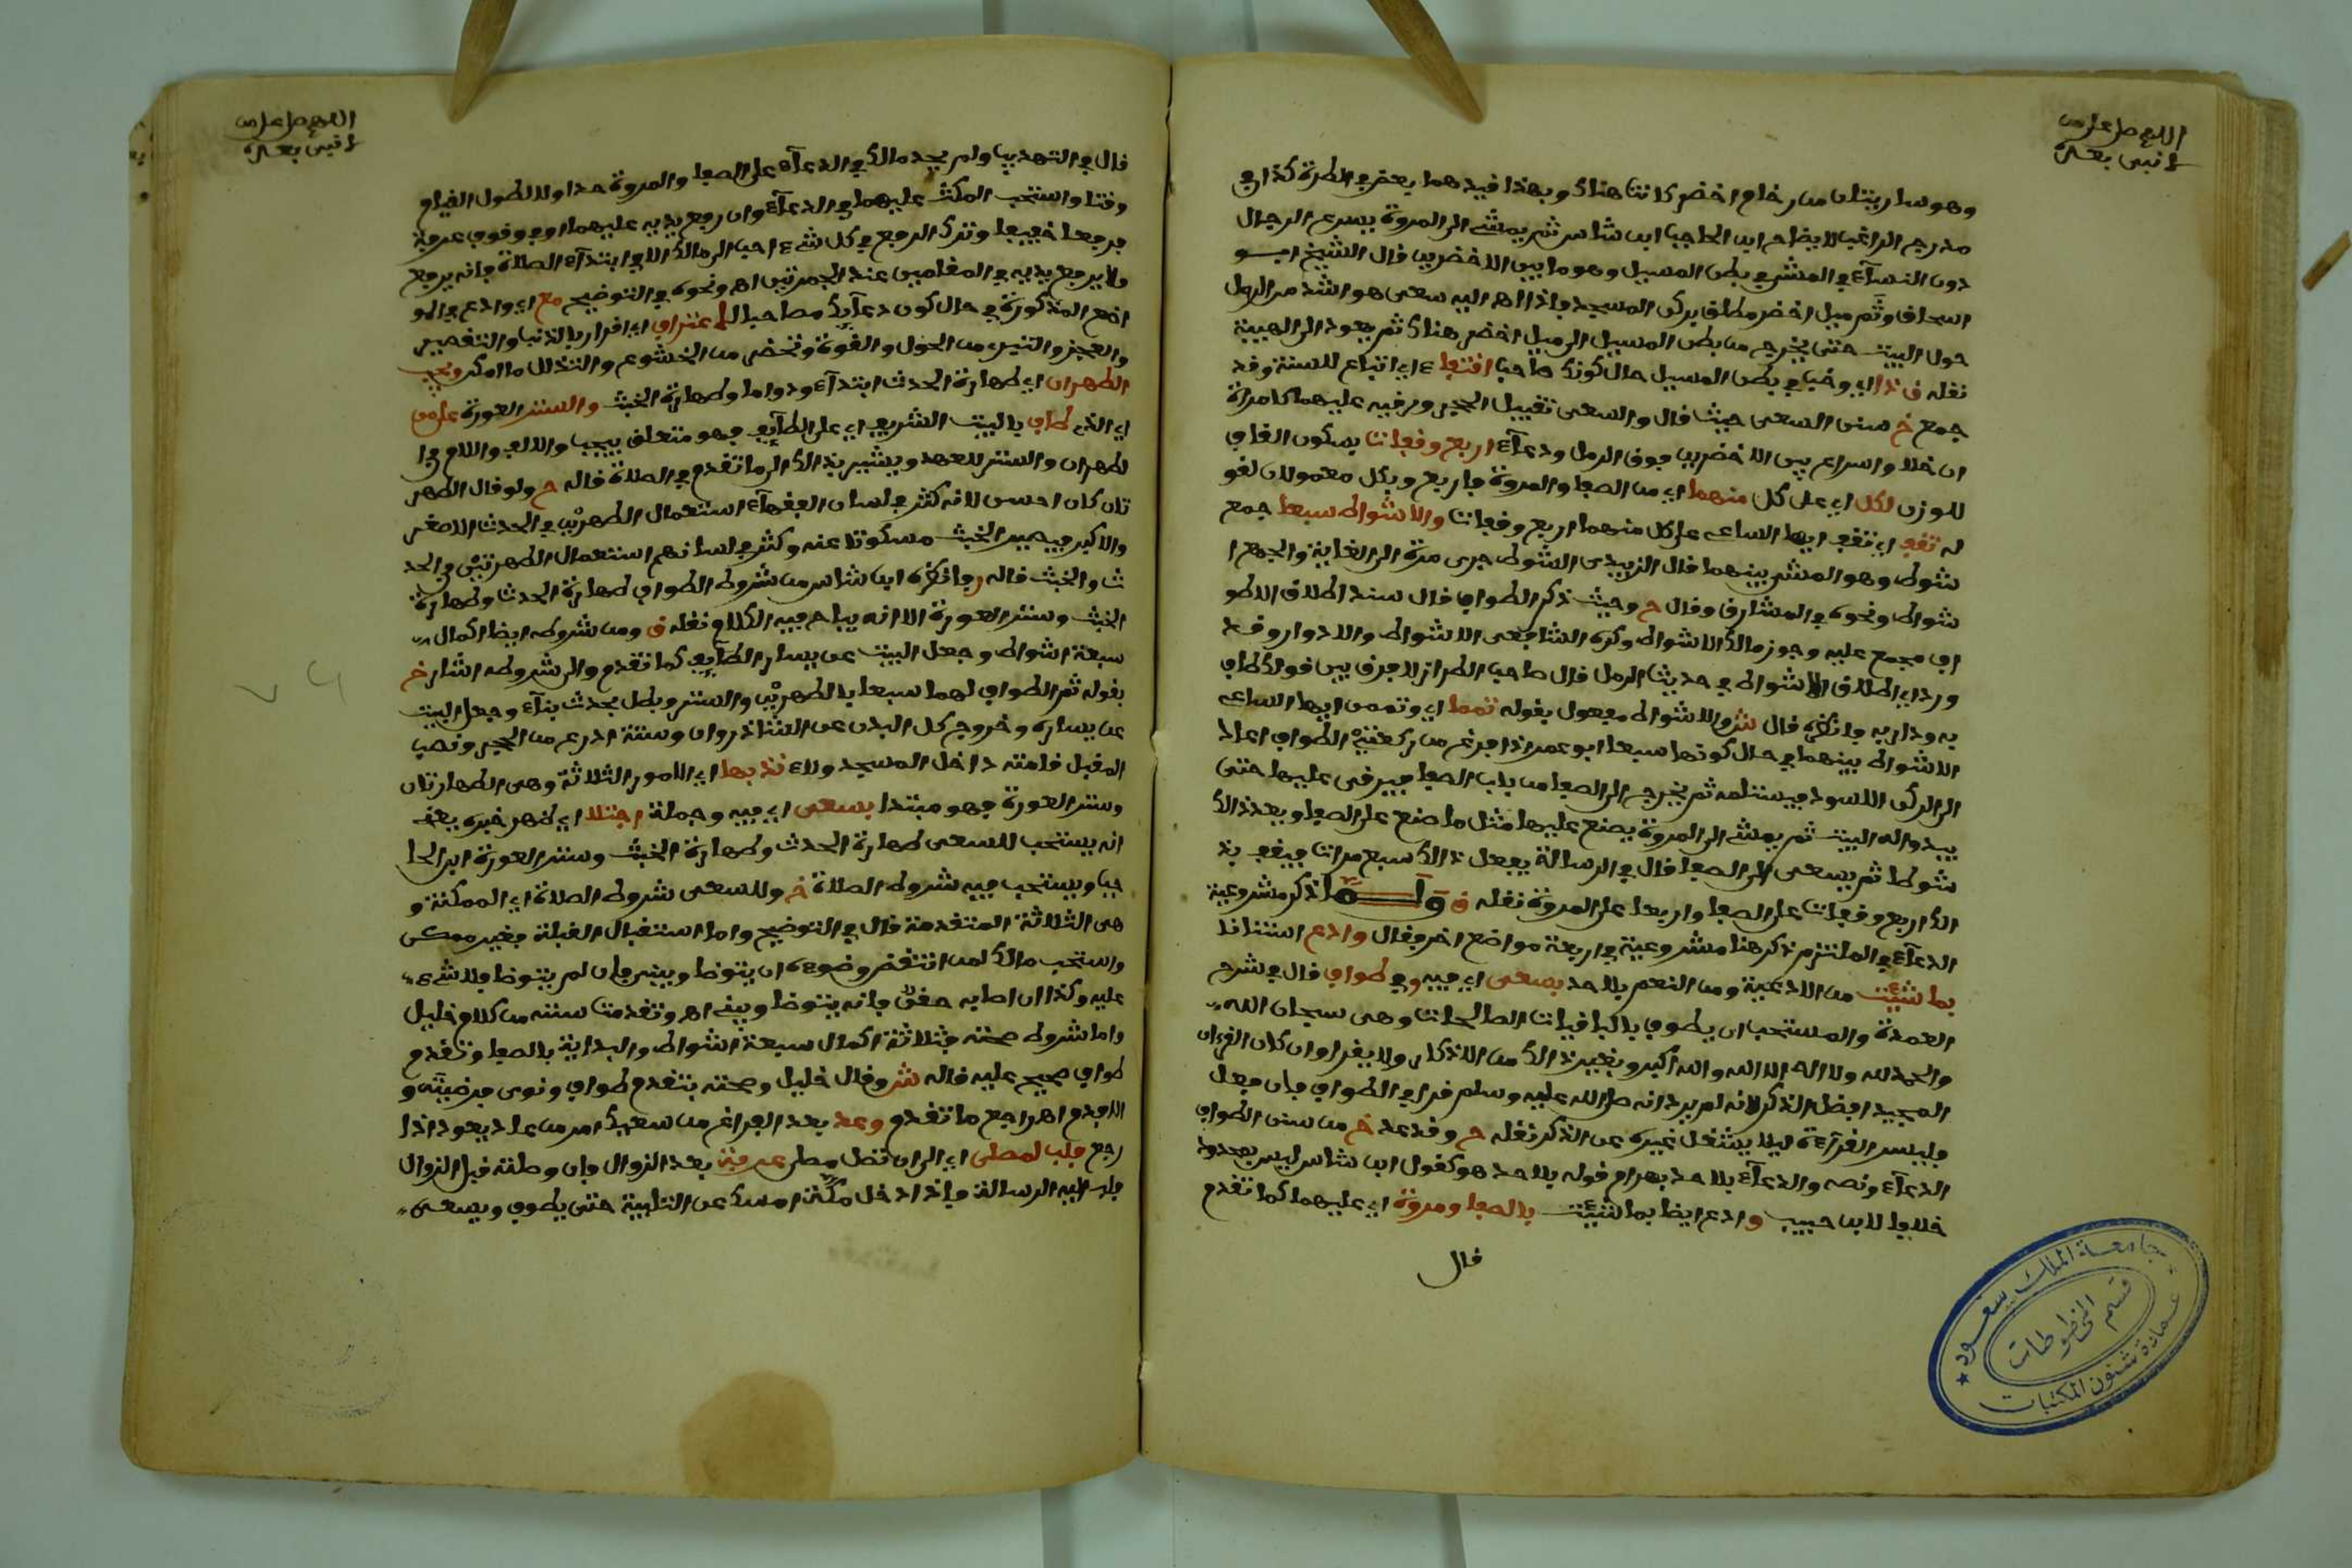 اللهم صل على من
لا نبي بعده
وهو ساريتان من رخام اخضر كانتا هناك وبهذا قيدهما بعض في الطرة كذا في
مدرج الراغب للايضاح ابن الحاجب ابن شاس ثم يمشي الى المروة يسرع الرجال
دون النسآء في المشي في بطن المسيل وهو ما بين الاخضرين قال الشيخ ابو
اسحاق وثم ميل اخضر مطلق بركن المسجد فاذا اهـ اليه سعى هو اشد من الرمل
حول البيت حتى يخرج من بطن المسيل الى ميل اخضر هناك ثم يعود الى الهيبة
نقله ق ذا اي وخبا في بطن المسيل حال كونك صاحب اقتفا ء اي اتباع للسنة وقد
جمع خ سنن السعي حيث قال والسعي تقبيل الحجر ورقيه عليهما كامراة
ان خلا واسراع بين الاخضرين فوق الرمل ودعآء اربع وقفات بسكون القاف
للوزن لكل اي على كل منهما اي من الصفا والمروة فاربع وبكل معمولان لقو
له تقف اي تقف ايها الساعي على كل منهما اربع وقفات والاشواط سبعا جمع
شوط وهو المشي بينهما قال الزبيدي الشوط جري مرة الى الغاية والجمع ا
شواط ونحوه في المشارق وقال ح وحيث ذكر الطواف قال سند اطلاق الاطو
اف مجمع عليه وجوز مالك الاشواط وكره الشافعي الاشواط والادوار وقد
ورد اي اطلاق الاشواط في حديث الرمل قال صاحب الطراز لا فرق بين قولك طاف
به ودار به فانظره قال شر والاشواط مفعول بقوله تمما اي وتممن ايها الساعي
الاشواط بينهما في حال كونها سبعا ابو عمر اذا فرغ من ركعتي الطواف اعاد
الى الركن الاسود فيستلمه ثم يخرج الى الصفا من باب الصفا فيرقى عليها حتى
يبدو اله البيت ثم يمشي الى المروة يصنع عليها مثل ما صنع على الصفا ويعدد ذالك
شوطا ثم يسعى الى الصفا قال في الرسالة يفعل ذالك سبع مرات فيقف بذ
الك اربع وقفات على الصفا واربعا على المروة نقله ق ولما ذكر مشروعية
الدعآء في الملتزم ذكر هنا مشروعيته في اربعة مواضع اخر فقال وادع استنانا
بما شيئت من الادعية ومن النعم بلا حد بسعى اي فيه وفي طواف قال في شرح
العمدة والمستحب ان يطوف بالباقيات الصالحات وهي سبحان الله
والحمد لله ولا اله الا الله والله اكبر وبغير ذالك من الاذكار ولا يقرا وان كان القرءان
المجيد افضل الذكر لانه لم يرد انه صلى الله عليه وسلم قرا في الطواف فان فعل
فليسر القرآءة ليلا يشغل غيره عن الذكر نقله ح وقد عد خ من سنن الطواف
الدعآء ونصه والدعآء بلا حد بهرام قوله بلا حد هو كقول ابن شاس ليس بمحدود
خلافا لابن حبيب وادع ايضا بما شيئت بالصفا ومروة اي عليهما كما تقدم
قال
جامعة الملك سعود
قسم المخطوطات
عمادة شئون المكتبات
اللهم صل على من
لا نبي بعده
قال في التهذيب ولم يحد مالك في الدعآء على الصفا والمروة حدا ولا لطول القيام
وقتا واستحب المكث عليهما في الدعآء وان رفع يديه عليهما او في وقوف عرفة
فرفعا خفيفا وترك الرفع في كل شيء احب الى مالك الا في ابتدآء الصلاة فانه يرفع
ولا يرفع يديه في المقامين عند الجمرتين اهـ ونحوه في التوضيح مع اي وادع في المو
اضع المذكورة في حال كون دعآيك مصاحبا لاعتراف اي اقرار بالذنب والتقصير
والعجز والتبري من الحول والقوة وتحضر من الخشوع والتذلل ما امكن ويجب
الطهران اي طهارة الحدث ابتدآء ودواما وطهارة الخبث والستر للعورة على من
اي الذي طاف بالبيت الشريف اي على الطآيف فهو متعلق بيجب والالف واللام في ا
لطهران والستر للعهد ويشير بذالك الى ما تقدم في الصلاة قاله ح ولو قال الطهر
تان كان احسن لانه كثر في لسان الفقهآء استعمال الطهرين في الحدث الاصغر
والاكبر فيصير الخبث مسكوتا عنه وكثر في لسانهم استعمال الطهرتين في الحد
ث والخبث قاله ر فانظره ابن شاس من شروط الطواف طهارة الحدث وطهارة
الخبث وستر العورة الا انه يباح فيه الكلام نقله ق ومن شروطه ايضا اكمال
سبعة اشواط وجعل البيت عن يسار الطآيف كما تقدم والى شروطه اشار خ
بقوله ثم الطواف لهما سبعا بالطهرين والستر وبطل بحدث بنآء وجعل البيت
عن يساره وخروج كل البدن عن الشاذروان وستة اذرع من الحجر ونصب
المقبل قامته داخل المسجد ولاء ندبها اي الامور الثلاثة وهي الطهارتان
وستر العورة فهو مبتدا بسعى اي فيه وجملة اجتلا اي ظهر خبره يعني
انه يستحب للسعي طهارة الحدث وطهارة الخبث وستر العورة ابن الحا
جب ويستحب فيه شروط الصلاة خ وللسعي شروط الصلاة اي الممكنة و
هي الثلاثة المتقدمة قال في التوضيح واما استقبال القبلة فغير ممكن
واستحب مالك لمن انتقض وضوءه ان يتوضا ويبني فان لم يتوضا فلا شيء
عليه وكذا ان اصابه حقن فانه يتوضا ويبني اهـ وتقدمت سنته من كلام خليل
واما شروط صحته فثلاثة اكمال سبعة اشواط والبداية بالصفا وتقدم
طواف صحيح عليه قاله شر وقال خليل وصحته بتقدم طواف ونوى فرضيته و
الا فدم اهـ راجع ما تقدم وعد بعد الفراغ من سعيك امر من عاد يعود اذا
رجع فلب لمصلى اي الى ان تصل مصلى عرفة بعد الزوال فان وصلته قبل الزوال
فلب اليه الرسالة فاذا دخل مكة امسك عن التلبية حتى يطوف ويسعى
٧٩